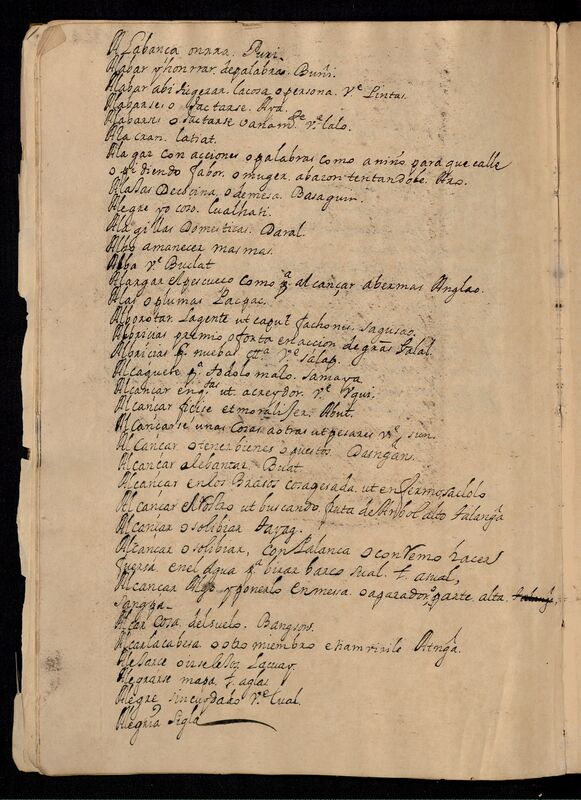 Alabanca onrra. Puri.
Alabar y honrrar de palabras. Buñi.
Alabar abi su gerar. la cosa o persona. vᵉ Pintas.
Alabarse o Jactarse. Ara.
Alabarse o Jactarse vanamᵗᵉ vᵉ lalo.
Ala cran. latiat.
Alagar con acciones o palabras como a niño para que calle
o pidiendo fabor. o muger. a baron tentandole. Aro.
Alajas De cocina, o de mesa. Basaguin.
Alegre yo coso. Lualhati.
Alagillas Domesticas. Daral.
Alba amanecer mas mas.
Alba vᵉ Buclat
Alargar el pescueco como pᵃ alcançar a ber mas Anglao.
Alas o plumas Pacpac.
Alborotar. la gente ut caquit fachones. sagusao.
Albricias premio o oferta en accion de gras Galal.
Albricias pr nuebas vᵉ salap.
Alcaguete pᵃ todo lo malo. Samaya
Alcançar en ut. acreydor. vᵉ Ygui.
Alcançar fisice et moraliter. Abut.
Alcançarse unas cosas a otras ut pesares vᵉ sun.
Alcançar o tener bienes o puestos. Dungan.
Alcançar o lebantar. Buat.
Alcançar en los Brasos cosa pesada. ut enfermo
Alcançar el Rosᵒ ut buscando. fruta de Arbol alto
Alcançar o solibiar
Alcançar o solibiar, con Palanca o con remo hacer
fuersa en el agua pᵃ birar barco sual. t. asual,
Alcançar Algo y ponerlo en mesa. o agarador, o parte alta.
Sangpa.
Alçar cosa. del suelo. Bangson.
Alcar la cabesa o otro miembro etiam virile Atnga.
Alegrarse mapa. t. agla
Alegre sin cuydado vᵉ Cual.
Alegria Sigla